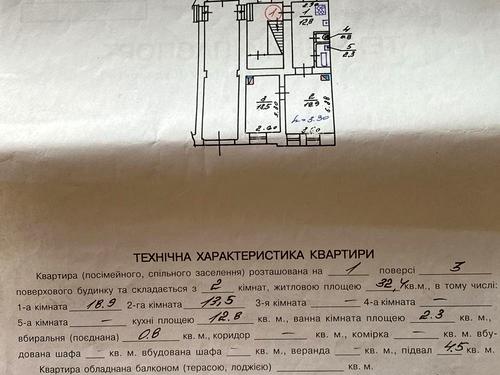 1
1
12,8
4
0.8
5
2.3
3
13,5
2
18,9
5.20
h=3.30
2.60
2.60
ТЕХНІЧНА ХАРАКТЕРИСТИКА КВАРТИРИ
Квартира (посімейного, спільного заселення) розташована на 1 поверсі 3
поверхового будинку та складається з 2 кімнат, житловою площею 32,4 кв.м., в тому числі:
1-а кімната 18,9 2-га кімната 13,5 3-я кімната – 4-а кімната –
5-а кімната – кухні площею 12.8 кв. м., ванна кімната площею 2.3 кв. м.,
вбиральня (поєднана) 0.8 кв. м., коридор – кв. м., комірка – кв. м. вбу-
дована шафа – кв. м. вбудована шафа – кв. м., веранда – кв. м., підвал 4.5 кв. м.
Квартира обладнана балконом (терасою, лоджією) кв. м.